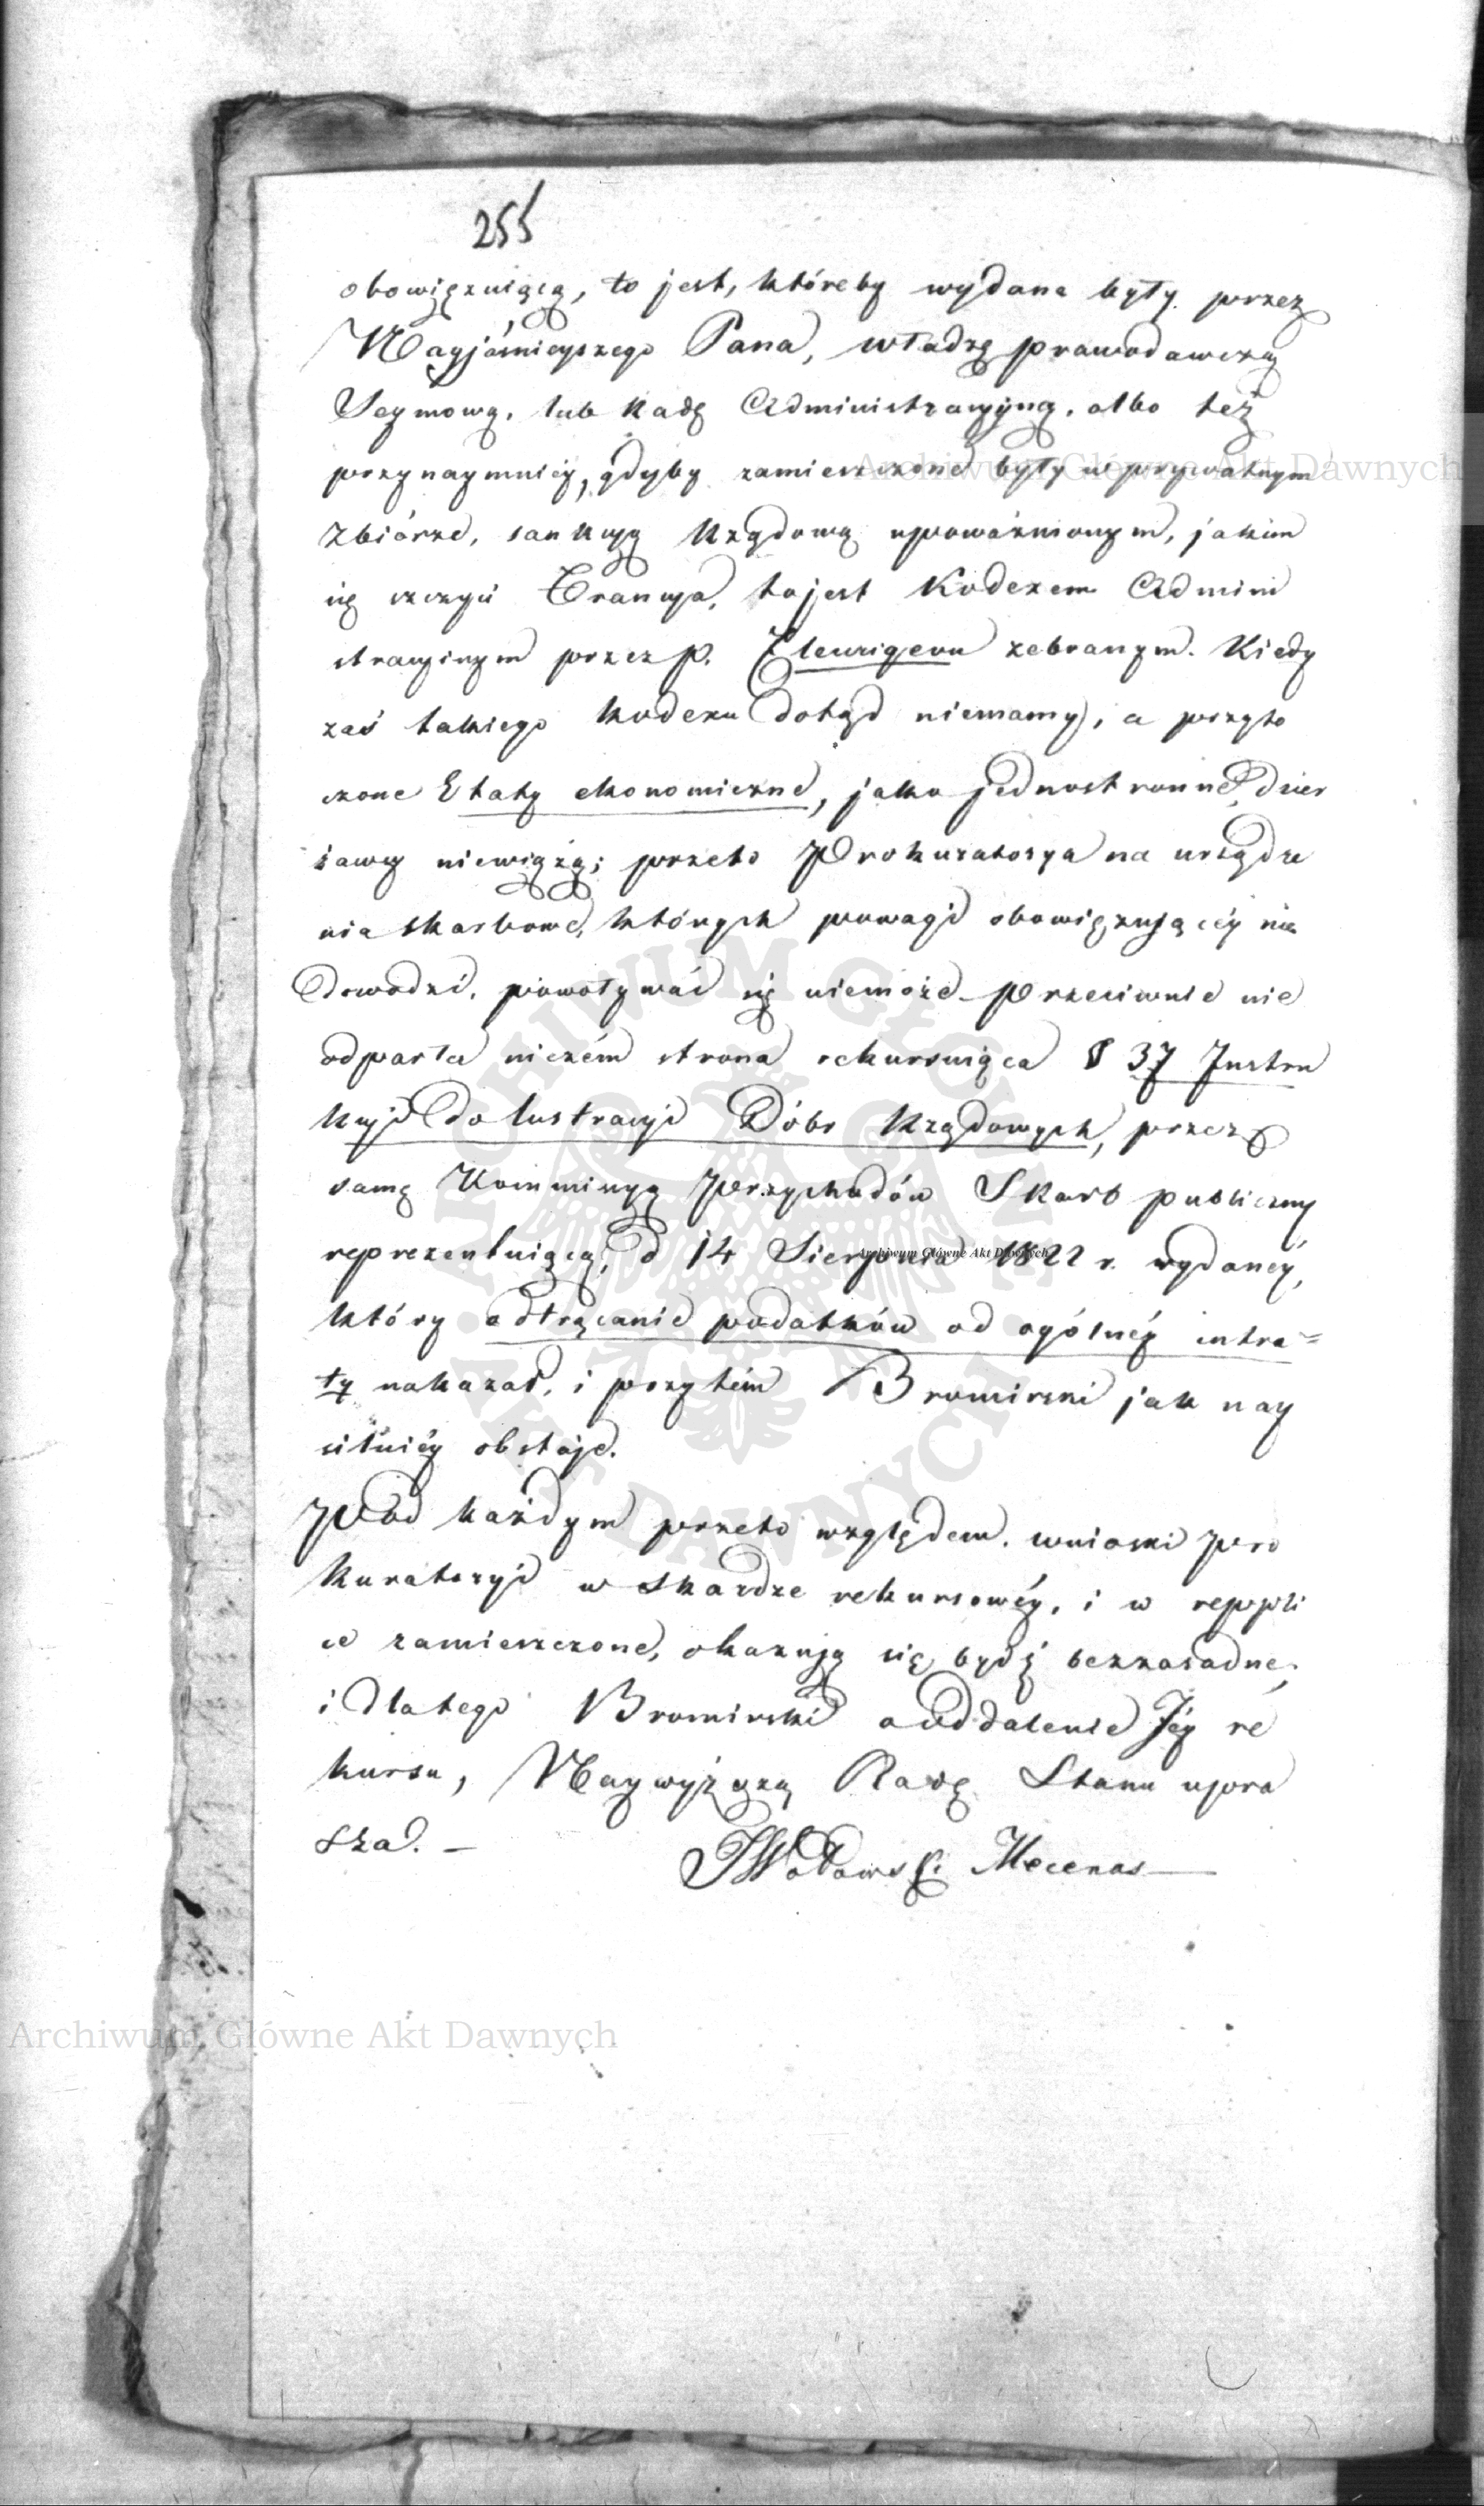 255
obowięzuiącą, to jest, któreby wydane były przez
Nayjaśnieyszego Pana, władzę prawodawczą
Seymową, lub Radę Administracyjną, albo też
przynaymniéy, gdyby zamieszczone były w prywatnym
zbiórze, sankcyą Rządową upoważnionym, jakim
się szczyci Francya, to jest Kodexem Admini
stracyinym przez P. Fleurigeon zebranym. Kiedy
zaś takiego kodexu dotąd niemamy, a przyto
czone Etaty ekonomiczne, jako jednostronne dzier
żawcy niewiążą; przeto Prokuratorya na urządze
nia skarbowe, których powagi obowięzującéy nie
dowodzi, powoływać się niemoże. Przeciwnie nie
odparła niczém strona rekursuiąca § 37 Instru
kcyi do lustracyi Dóbr Rządowych, przez
samę Kommissyą Przychodów Skarb publiczny
reprezentuiącą, d 14 Sierpnia 1822 r. wydanéy,
który odtrącanie podatków od ogólnéy intra=
ty nakazał, i przytém Bromirski jak nay
silniéy obstaje.
Pod każdym przeto względem, wnioski Pro
kuratoryi w skardze rekursowéy, i w reppli
ce zamieszczone, okazują się bydź bezzasadne,
i dlatego Bromirski o oddalenie Jéy re
kursu, Naywyższą Radę Stanu upra
sza. —
Wołowski Mecenas —
Archiwum Główne Akt Dawnych
Archiwum Główne Akt Dawnych
Archiwum Główne Akt Dawnych
ARCHIWUM GŁÓWNE AKT DAWNYCH